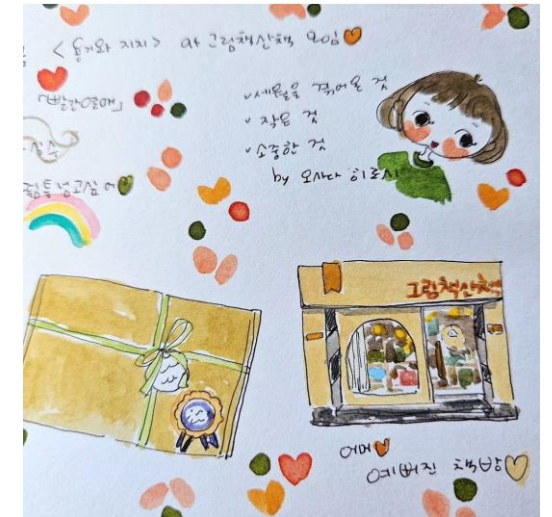 <용기와 지지> at 그림책산책 모임
「빨간열매」
✓세월을 겪어온 것
✓작은 것
✓소중한 것
by 오사다 히로시
그림책산책
어머
예뻐진 책방